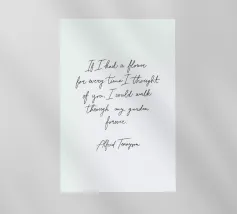 If I had a flower
for every time I thought
of you, I could walk
through my garden
forever.
Alfred Tennyson